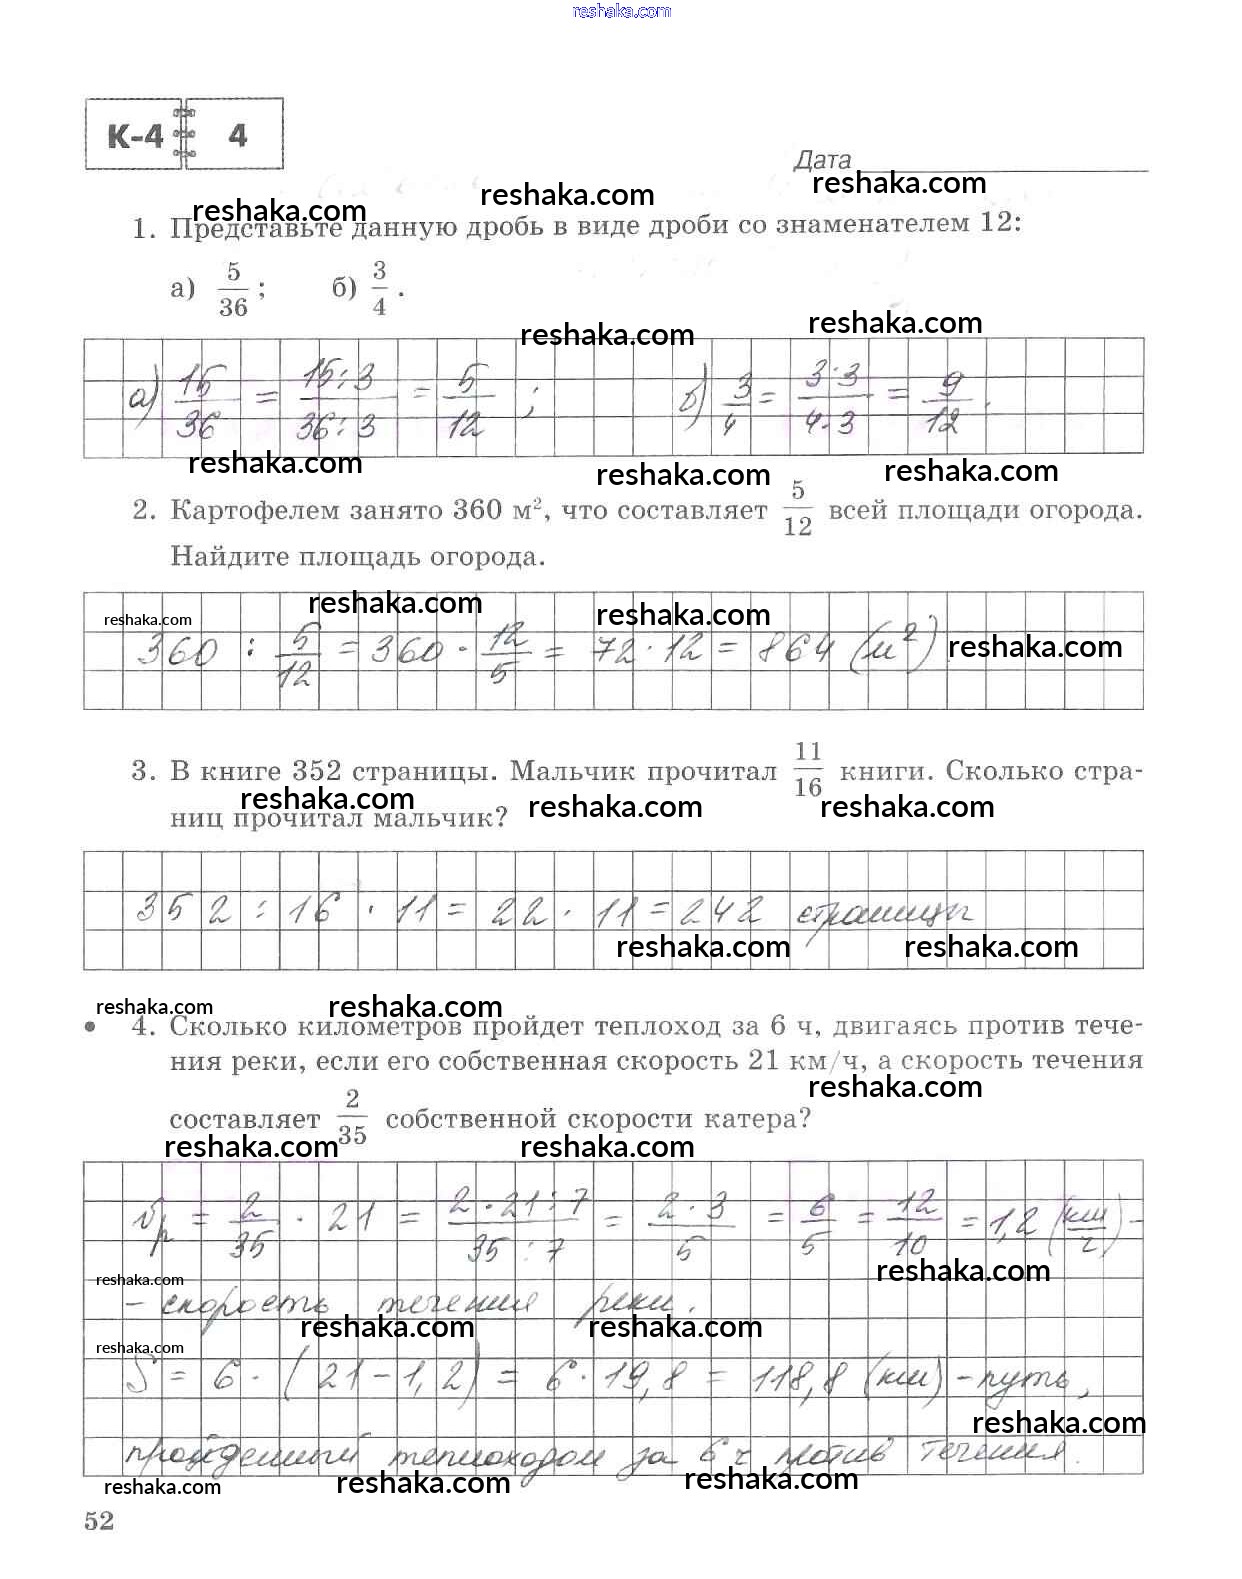 reshaka.com
К-4 4
Дата
reshaka.com reshaka.com reshaka.com
1. Представьте данную дробь в виде дроби со знаменателем 12:
а) 5/36 ; б) 3/4 .
reshaka.com reshaka.com
а) 15/36 = 15:3/36:3 = 5/12 ; б) 3/4 = 3·3/4·3 = 9/12 .
reshaka.com reshaka.com reshaka.com
2. Картофелем занято 360 м², что составляет 5/12 всей площади огорода.
Найдите площадь огорода.
reshaka.com reshaka.com reshaka.com
360 : 5/12 = 360 · 12/5 = 72 · 12 = 864 (м²) reshaka.com
3. В книге 352 страницы. Мальчик прочитал 11/16 книги. Сколько стра-
reshaka.com reshaka.com reshaka.com
ниц прочитал мальчик?
352 : 16 · 11 = 22 · 11 = 242 страницы
reshaka.com reshaka.com
reshaka.com reshaka.com
• 4. Сколько километров пройдет теплоход за 6 ч, двигаясь против тече-
ния реки, если его собственная скорость 21 км/ч, а скорость течения
reshaka.com
составляет 2/35 собственной скорости катера?
reshaka.com reshaka.com
Vр = 2/35 · 21 = 2·21:7/35:7 = 2·3/5 = 6/5 = 12/10 = 1,2 (км/ч) -
reshaka.com reshaka.com
- скорость течения реки.
reshaka.com reshaka.com
reshaka.com
S = 6 · (21 - 1,2) = 6 · 19,8 = 118,8 (км) - путь,
reshaka.com
пройденный теплоходом за 6 ч против течения.
reshaka.com reshaka.com reshaka.com
52